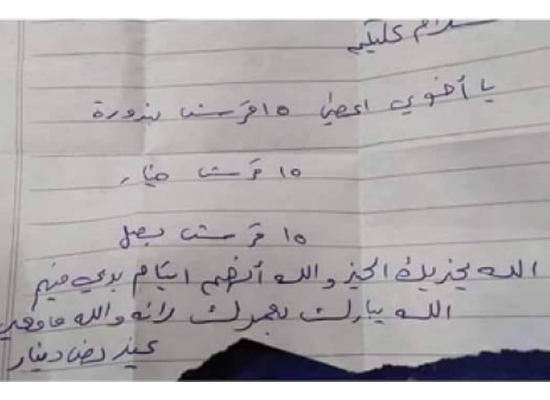 سلام عليكم
يا أخوي اعطي ١٥ قرش بندورة
١٥ قرش خيار
١٥ قرش بصل
الله يجزيك الخير والله أنهم ايتام بدي
الله يبارك بعمرك وانه والله ما معي
غير نص دينار